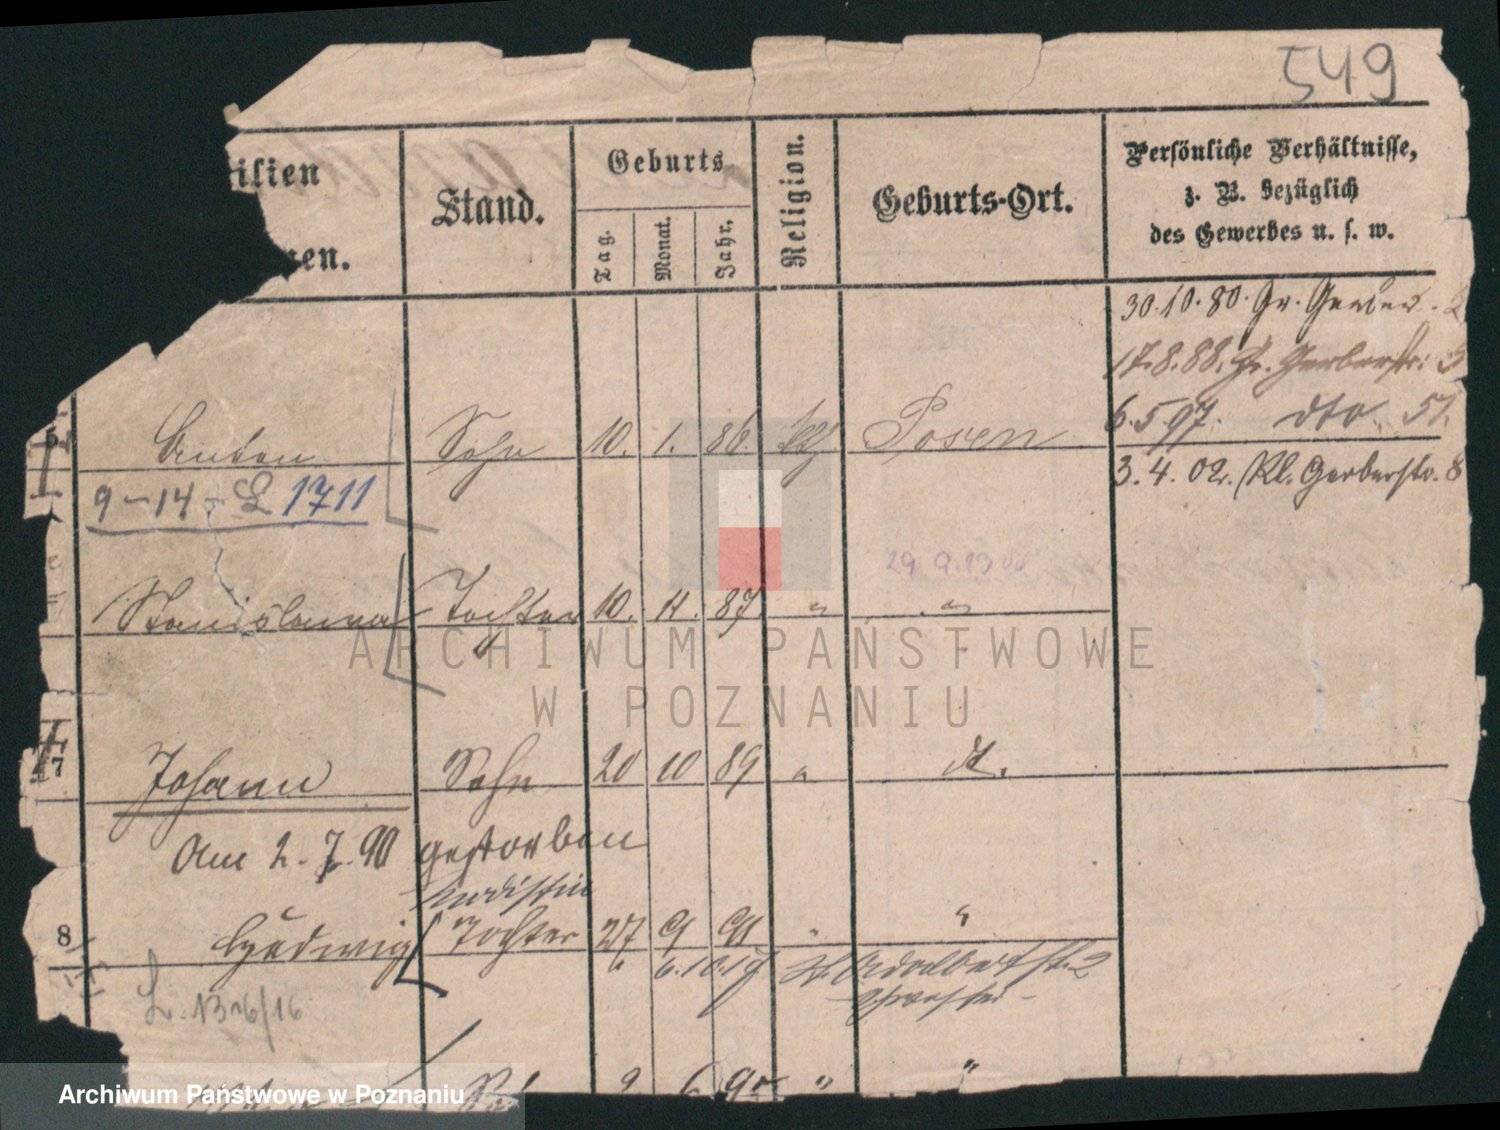 549
ilien
en.
Stand.
Geburts
Tag.
Monat.
Jahr.
Religion.
Geburts-Ort.
Persönliche Verhältnisse,
z. B. bezüglich
des Gewerbes u. s. w.
30.10.80. Gr. Gerber
17.8.88. Gr. Gerberstr.
6.5.97. dto 51.
3.4.02. Kl. Gerberstr. 8
Sohn 10. 1. 86. kth Posen
9-14- L 1711
29.9.13
Stanislawa Tochter 10. 11. 87 " "
7 Johann Sohn 20 10 89 " d.
Am 2.7.90 gestorben
Modistin
8 Hedwig Tochter 27 9 91 " "
6.10.17 Adalbertstr. 2
Schwester
9 6 "
ARCHIWUM PAŃSTWOWE
W POZNANIU
Archiwum Państwowe w Poznaniu